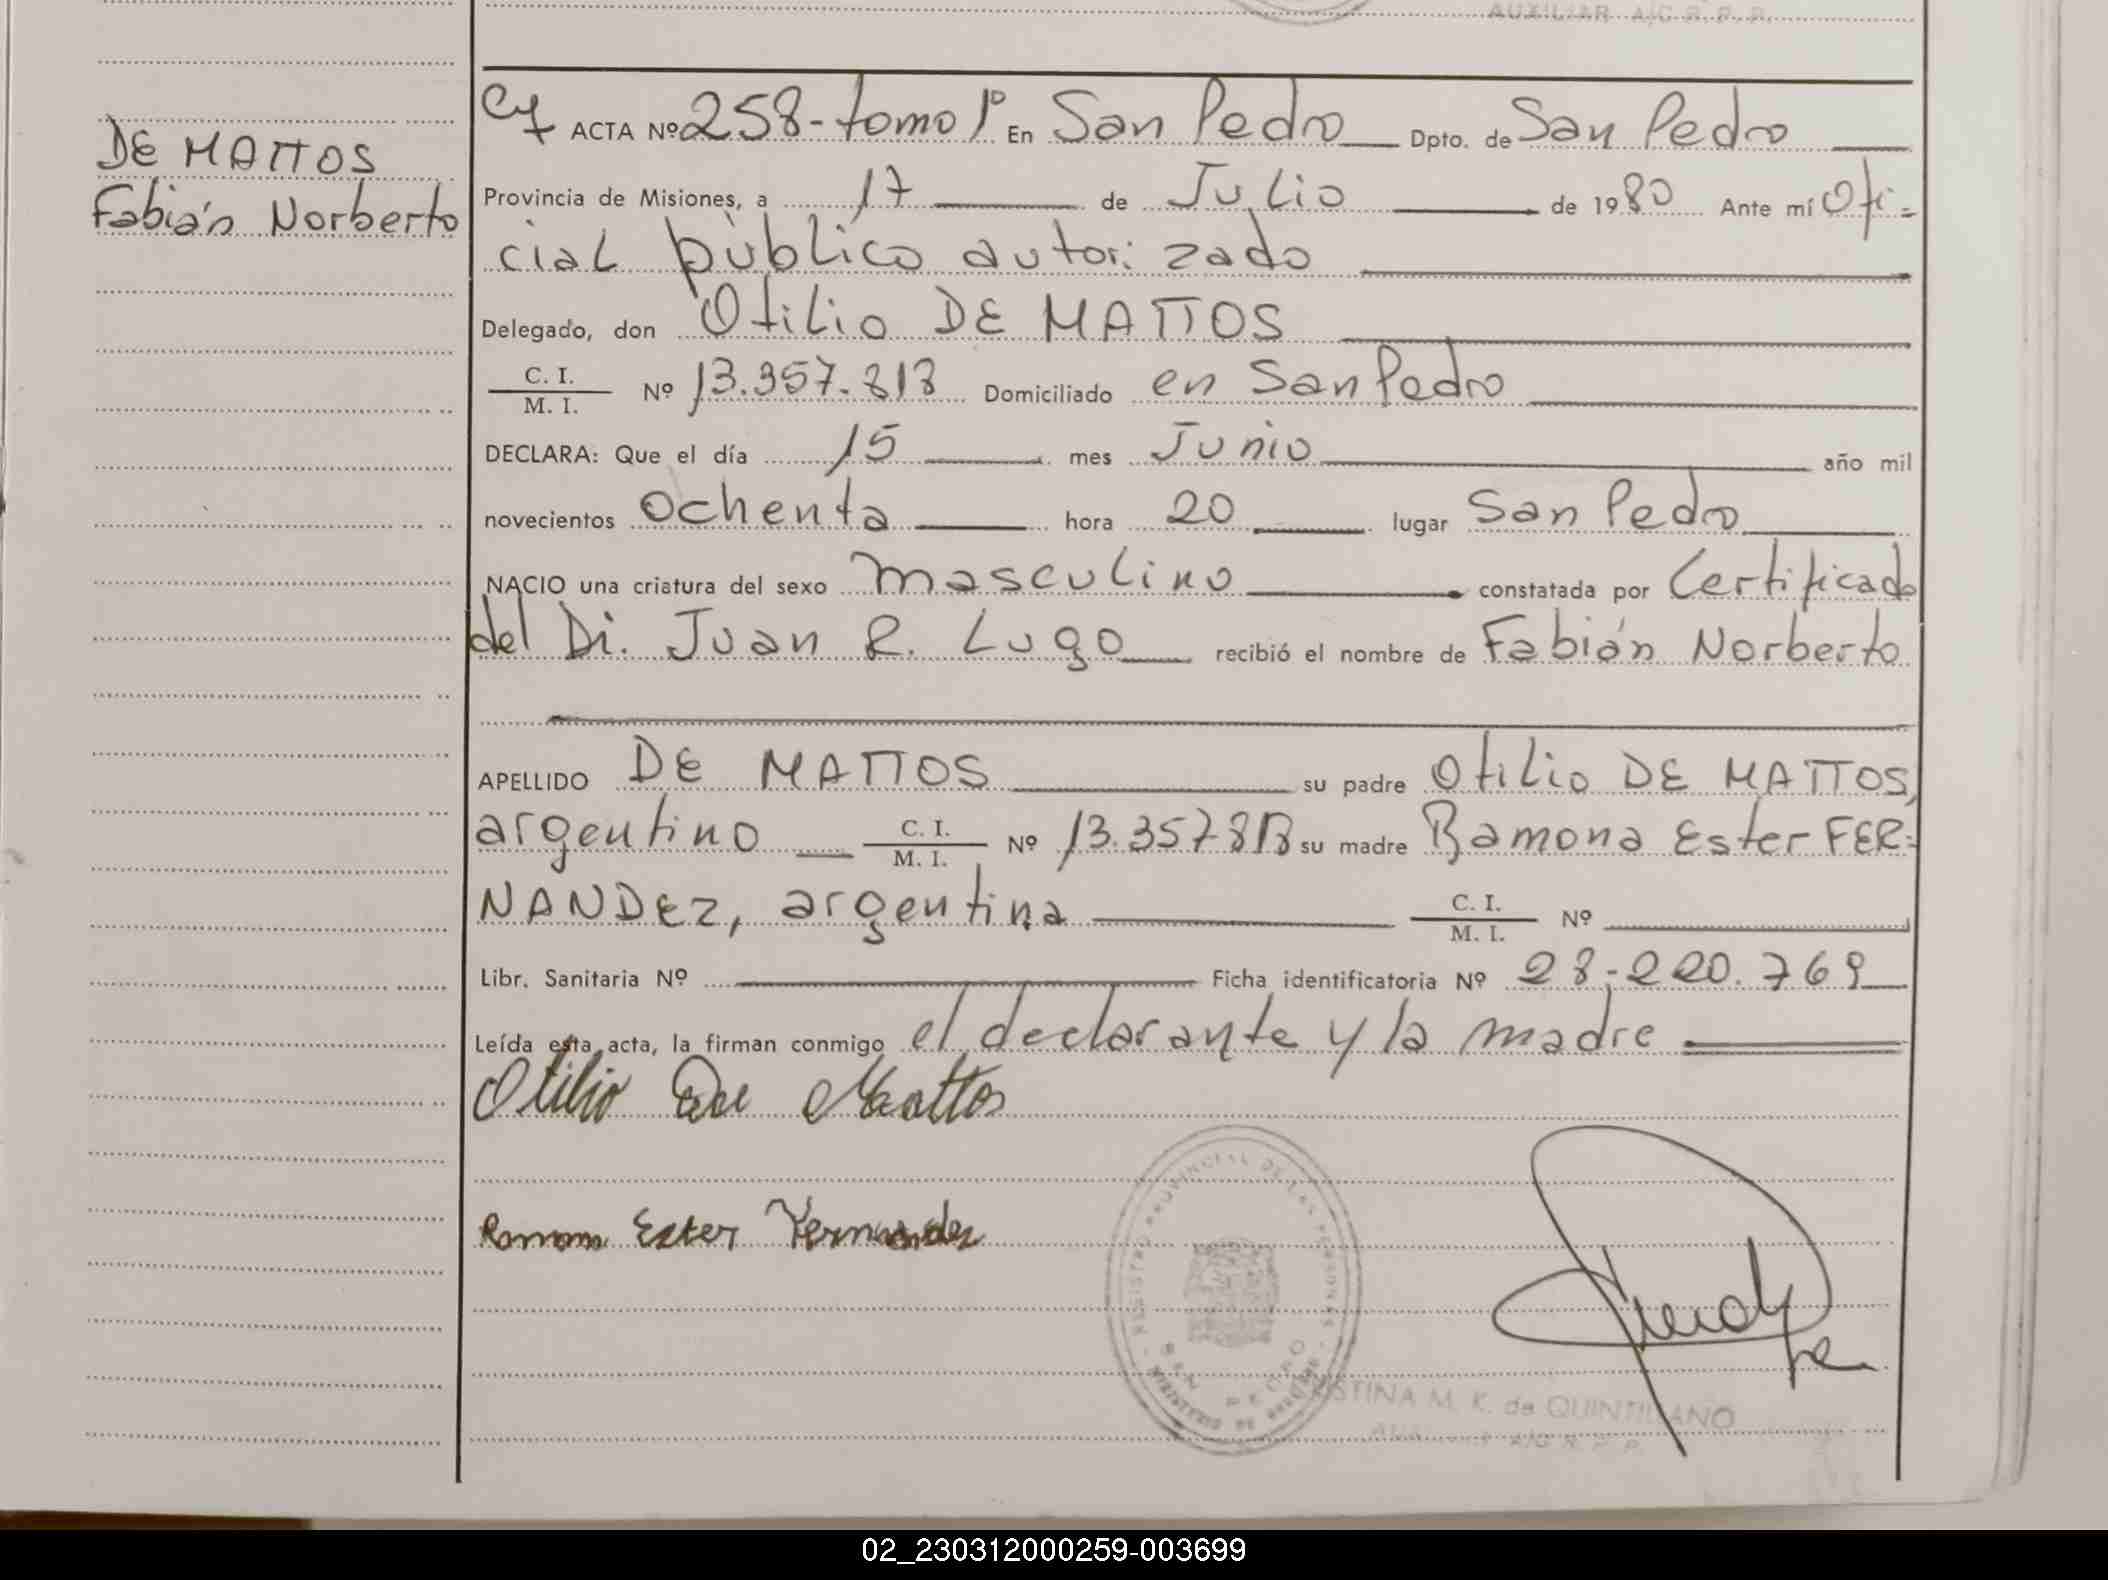 AUXILIAR A/C R. P. P.
DE MATTOS
Fabián Norberto
ACTA Nº 258 - tomo 1º En San Pedro Dpto. de San Pedro
Provincia de Misiones, a 17 de Julio de 1980 Ante mí Ofi-
cial pùblico autorizado
Delegado, don Otilio DE MATTOS
C. I.
M. I. Nº 13.357.818 Domiciliado en San Pedro
DECLARA: Que el día 15 mes Junio año mil
novecientos ochenta hora 20 lugar San Pedro
NACIO una criatura del sexo masculino constatada por Certificado
del Dr. Juan R. Lugo recibió el nombre de Fabián Norberto
APELLIDO DE MATTOS su padre Otilio DE MATTOS,
argentino C. I.
M. I. Nº 13.357818 su madre Ramona Ester FER-
NANDEZ, argentina C. I.
M. I. Nº
Libr. Sanitaria Nº Ficha identificatoria Nº 28.220.769
Leída esta acta, la firman conmigo el declarante y la madre
Otilio De Mattos
Ramona Ester Fernandez
REGISTRO PROVINCIAL DE LAS PERSONAS
SAN PEDRO
MINISTERIO DE
M. K. de QUINTILIANO
A/C R. P. P.
02_230312000259-003699